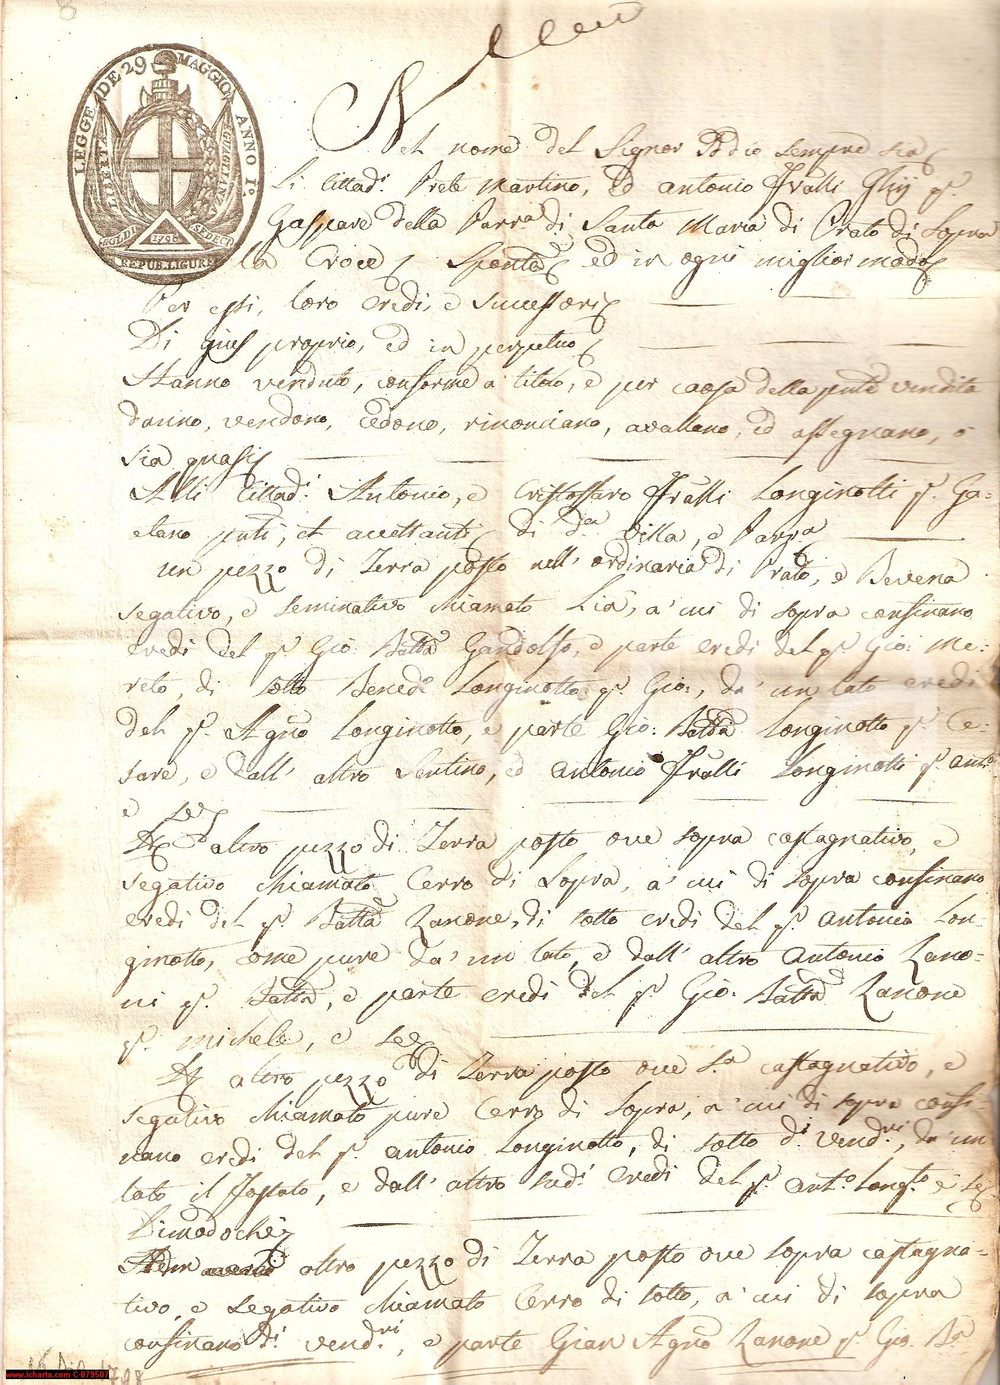 LEGGE DE 29 MAGGIO ANNO I°.
LIBERTA EGUAGLIANZA
SOLDI SEDECI
1798
REPUB. LIGURE
Nel nome del Signor Iddio sempre sia
Li Cittad.i Prete Martino, ed Antonio Fralli Ghij q.m
Gaspare della Parr.a di Santa Maria di Prato di Sopra
la Croce Spontè ed in ogni miglior modo
Per essi, loro eredi, e successori
Di gius proprio, ed in perpetuo
Hanno venduto, conforme a' titolo, e per caosa della pnte vendita
danno, vendono, cedono, rinonciano, avallano, ed assegnano, ò
sia quasi
Alli Cittad.i Antonio, e Cristoffaro Fralli Longinotti q.m Ga-
etano pnti, et accettanti di d.a Villa, e Parr.a
un pezzo di Terra posto nell' ordinaria di Prato, e Bevena
segativo, e seminativo chiamato Lia, a' cui di sopra confinano
eredi del q.m Gio: Batta Gandolfo, e parte eredi del q.m Gio: Me-
reto, di sotto Bened.o Longinotto q.m Gio:, da' un lato eredi
del q.m Agno Longinotto, e parte Gio: Batta Longinotto q.m Ce-
sare, e dall' altro Sentino, ed Antonio Fralli Longinotti q.m Ant.o
e se
altro pezzo di Terra posto ove sopra castagnativo, e
segativo chiamato Cerro di Sopra, a' cui di sopra confinano
eredi del q.m Batta Zanone, di sotto eredi del q.m Antonio Lon-
ginotto, come pure da' un lato, e dall' altro Antonio Zano-
ni q.m Batta, e parte eredi del q.m Gio: Batta Zanone
q.m Michele, e se
altro pezzo di Terra posto ove s.a castagnativo, e
segativo chiamato pure Cerro di Sopra, a' cui di sopra confi-
nano eredi del q.m Antonio Longinotto, di sotto d.i vend.ri, da' un
lato il Fossato, e dall' altro sud.i eredi del q.m Ant.o Long.o e se
Dimodochè
altro pezzo di Terra posto ove sopra castagna-
tivo, e segativo chiamato Cerro di sotto, a' cui di sopra
confinano d.i vend.ri, e parte Gian Agno Zanone q.m Gio: B.a
16 Dic. 1798
www.icharta.com C-079507